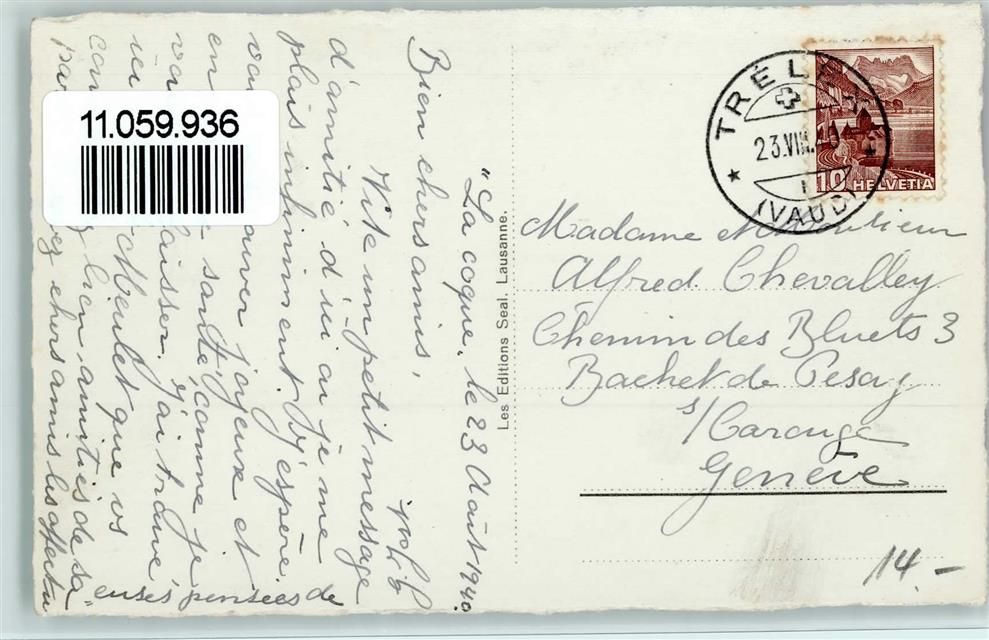 11.059.936
TRÉLEX
23.VIII.40
(VAUD)
10 HELVETIA
Les Editions Seal. Lausanne.
"La coque, le 23 Août 1940.
Bien chers amis,
Vite un petit message
d'amitié d'ici où je me
plais infiniment. J'espère
trouver joyeux et
en santé, comme je
laisser. J'ai
Meulet que vs
bien amitiés de sa
chers amis les affectu
euses pensées de
Madame et Monsieur
Alfred Chevalley
Chemin des Bluets 3
Bachet de Pesay
s/Carouge
Genève
14.-